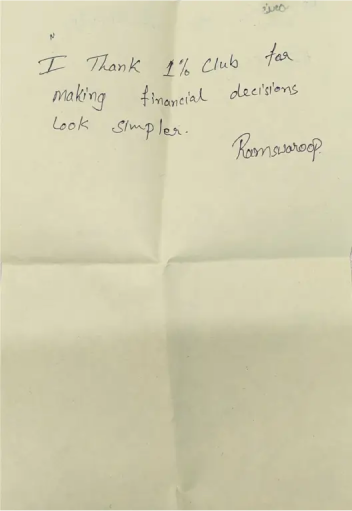 I Thank 1% Club for
making financial decisions
Look simpler.
Ramswaroop